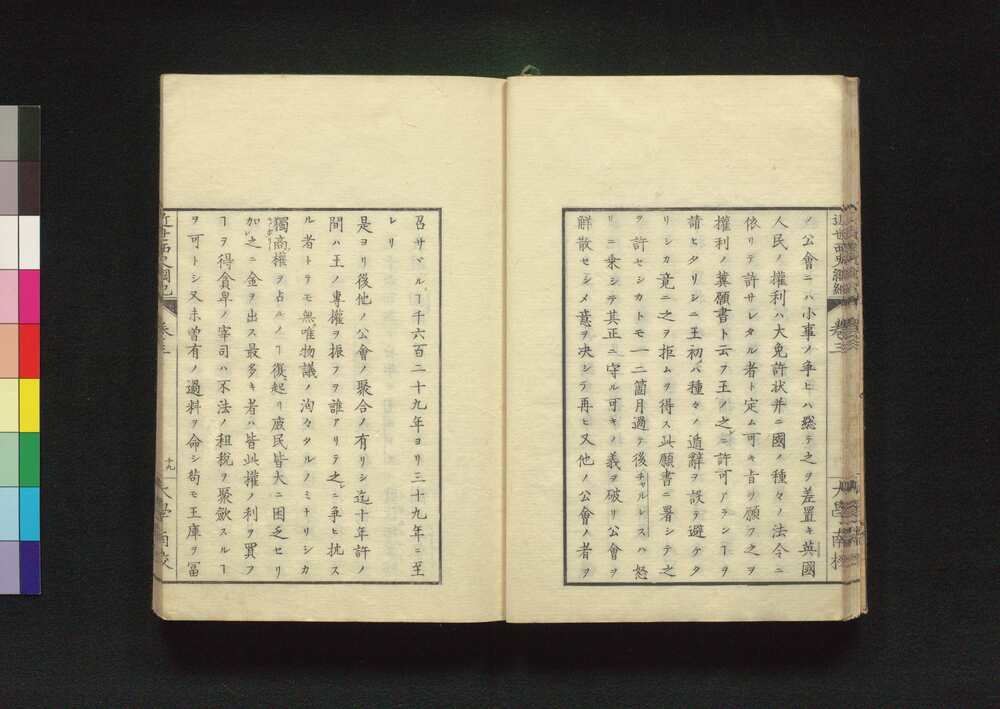 ノ公會ニハ小事ノ爭ヒハ總テ之ヲ差置キ英國
人民ノ權利ハ大免許狀并ニ國ノ種々ノ法令ニ
依リテ許サレタル者ト定ム可キ旨ヲ願フ之ヲ
權利ノ冀願書ト云フ王ノ之ニ許可アランヿヲ
請ヒタリシニ王初ハ種々ノ遁辭ヲ設テ避ケタ
リシカ竟ニ之ヲ拒ムヲ得ス此願書ニ署シテ之
ヲ許セシカトモ一二箇月過テ後チャルレスハ怒
リニ乘シテ其正ニ守ル可キノ義ヲ破リ公會ヲ
解散セシメ意ヲ決シテ再ヒ又他ノ公會ノ者ヲ
召サヾルヿ千六百二十九年ヨリ三十九年ニ至
レリ
是ヨリ後他ノ公會ノ聚合ノ有リシ迄十年許ノ
間ハ王ノ專權ヲ振フヲ誰アリテ之ニ爭ヒ抗ス
ル者トテモ無唯物議ノ洶々タルノミナリシカ
獨商權ヲ占ムルノヿ復起リ庶民皆大ニ困乏セリ
加之ニ金ヲ出ス最多キ者ハ皆此權ノ利ヲ買フ
ヿヲ得貪卑ノ宰司ハ不法ノ租稅ヲ聚斂スルヿ
ヲ可トシ又未曾有ノ過料ヲ命シ苟モ王庫ヲ冨
卷三
十九
大學南校
卷三
大學南校